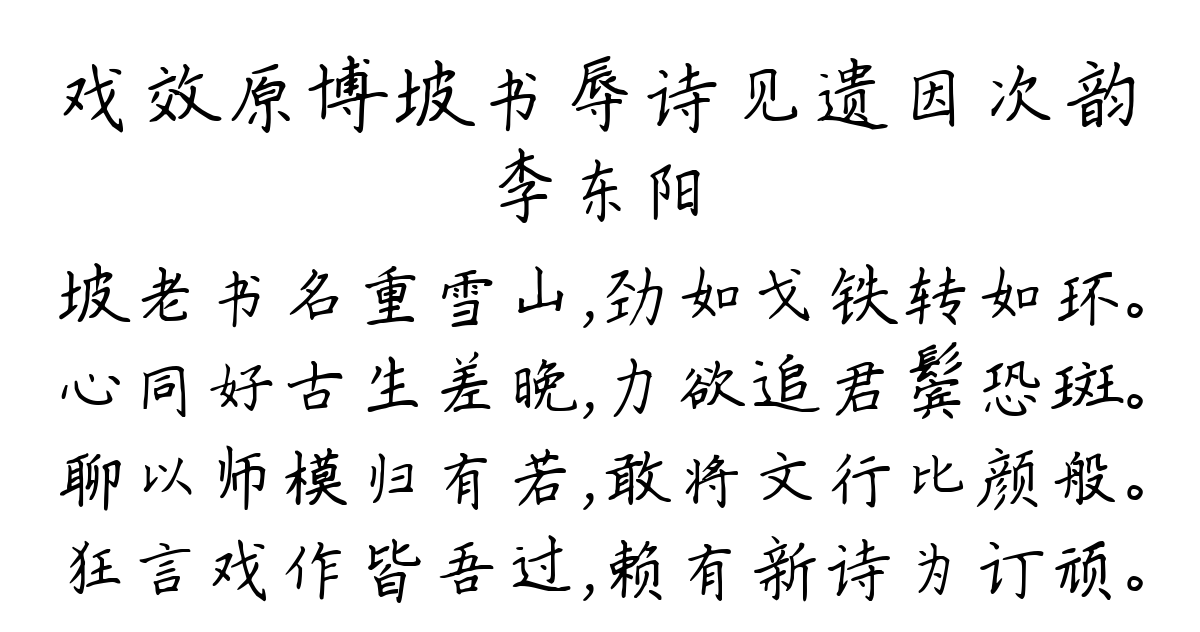 戏效原博坡书辱诗见遗因次韵
李东阳
坡老书名重雪山,劲如戈铁转如环。
心同好古生差晚,力欲追君鬓恐斑。
聊以师模归有若,敢将文行比颜般。
狂言戏作皆吾过,赖有新诗为订顽。